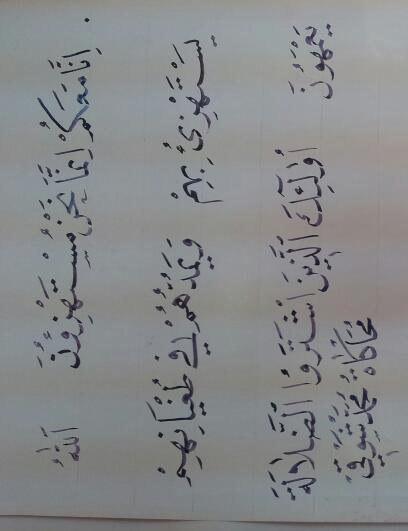 . إِنَّا مَعَكُمْ إِنَّمَا نَحْنُ مُسْتَهْزِؤُنَ اَللّٰهُ
يَسْتَهْزِئُ بِهِمْ وَيَمُدُّهُمْ فِي طُغْيَانِهِمْ
يَعْمَهُونَ اُولٰئِكَ الَّذِينَ اشْتَرَوُا الضَّلَالَةَ
مُحَاكَاة مُحَمَّد شَوْقِي